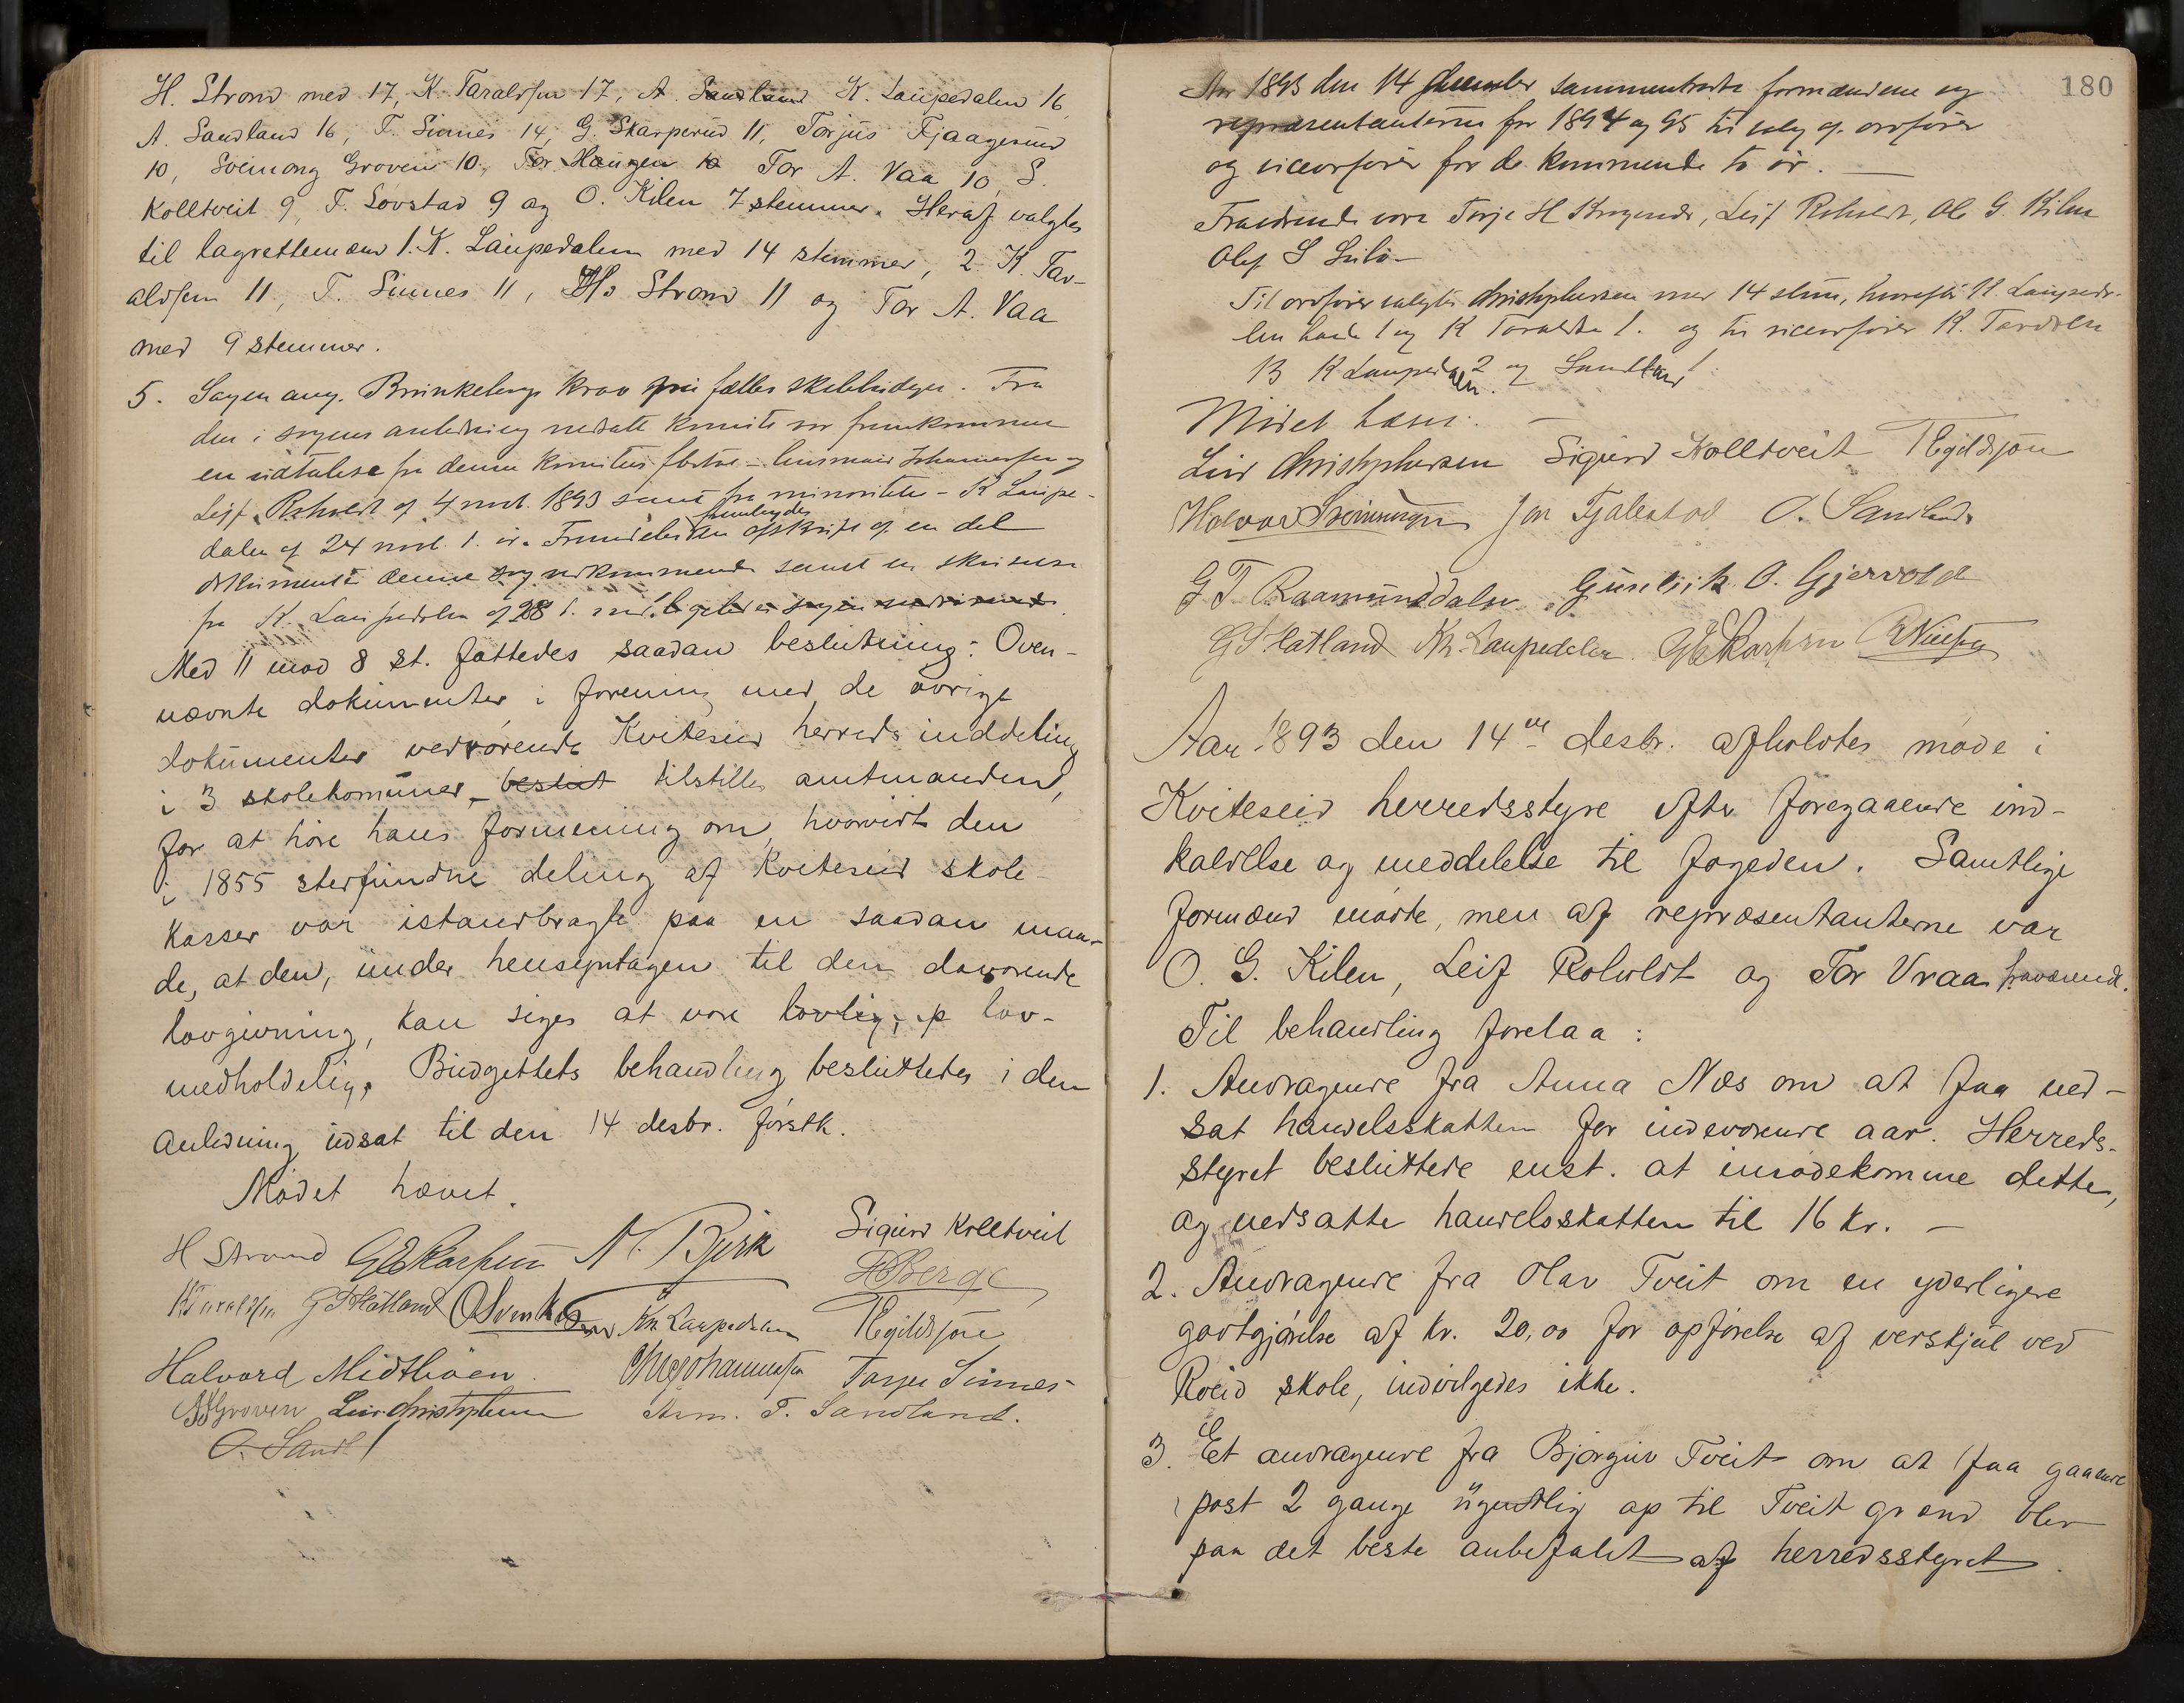 H. Strond med 17, K. Taraldsen 17, A. Sandland K. Laupedalen 16,
A. Sandland 16, T. Sinnes 14, G. Skarperud 11, Torjus Fjaagesund
10, Sveinong Groven 10, Tor Haugen 10 Tor A. Vaa 10, S.
Kolltveit 9, T. Lovstad 9 og O. Kilen 7 stemmer. Heraf valgtes
til lagrettemænd 1. K. Laupedalen med 14 stemmer, 2. K. Tar-
aldsen 11, T. Sinnes 11, H. Strond 11 og Tor A. Vaa
med 9 stemmer.
5. Sagen ang. Brunkebergs krav fælles skolebidrag. Fra
den i sagens anledning nedsatte komite var fremkommen
en udtalelse fra denne komites Johannessen og
Leif Roholdt af 4 novb. 1893 samt fra minoriteten - K Laupe-
dalen af 24 novb. 1. år. fremlagdes afskrift af en del
dokumenter denne sag vedkommende samt en skrivelse
fra K. Laupedalen af 28 1.
Med 11 mod 8 st. fattedes saadan beslutning: Oven-
nævnte dokumenter i forening med de øvrige
dokumenter vedrørende Kviteseid herreds inddeling
i 3 skolekomuner, beslut tilstilles amtmanden,
for at høre hans formening om, hvorvidt den
i 1855 stedfundne deling af Kviteseid skole-
kasser var istandbragte paa en saadan maa-
de, at den, under hensyntagen til den daværende
lovgivning, kan siges at være lovlig, p lov-
medholdelig. Budgettets behandling besluttedes i den
anledning udsat til den 14 desbr. førstk.
Mødet hævet.
H Strond GESkarperu N. Bjerk Sigurd Kolltveit
KTaraldsen GTHatland Kn Laupedalen HBerge
TEgildsjøen
Halvord Midtbøen. Johannessen Torjus Sinnes
SSGroven Leir Christophersen Aron. T. Sandland.
O. Sandl
180
Aar 1893 den 14 december sammentraadte formændene og
repræsentanterne for 1894 og 95 til valg af ordfører
og viceordfører for de kommende to år.
Fraværende vare Terje H , Leif Roholdt, Ole G. Kilen
Olaf S
Til ordfører valgtes Christophersen med 14 stem, hvorefter K. Laupeda-
len havde 1 og K Taraldsen 1. og til viceordfører K. Taraldsen
13 K Laupedalen 2 og Sandland 1.
Mødet hævet.
Leir Christophersen Sigurd Kolltveit TEgildsjøen
Halvor Sveinungsen Jon Fjalestad O. Sandland
G T Raamunddalen Gunleik O. Gjervold
GTHatland Kn. Laupedalen. GESkarperu
Aar 1893 den 14de desbr. afholdtes møde i
Kviteseid herredsstyre efter foregaaende ind-
kaldelse og meddelelse til fogeden. Samtlige
formænd mødte, men af repræsentanterne var
O. G. Kilen, Leif Roholdt og Tor Vraa fraværend.
Til behandling forelaa:
1. Andragende fra Anna Næs om at faa ned-
sat handelsskatten for indeværende aar. Herreds-
styret besluttede enst. at imødekomme dette,
og nedsatte handelsskatten til 16 kr. —
2. Andragende fra Olav Tveit om en yderligere
godtgjørelse af kr. 20,00 for opførelse af vedskjul ved
Roeid skole, indvilgedes ikke.
3. Et andragende fra Bjørgulv Tveit om at faa gaaende
post 2 gange ugentlig op til Tveit grænd blev
paa det beste anbefalet af herredsstyret.